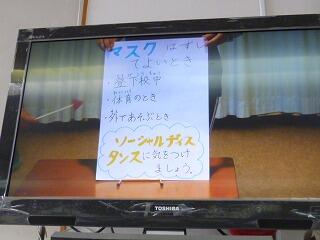 マスク はずし
てよいとき
・登下校中
・体育のとき
・外であそぶとき
ソーシャルディス
タンスに気をつけ
ましょう。
TOSHIBA